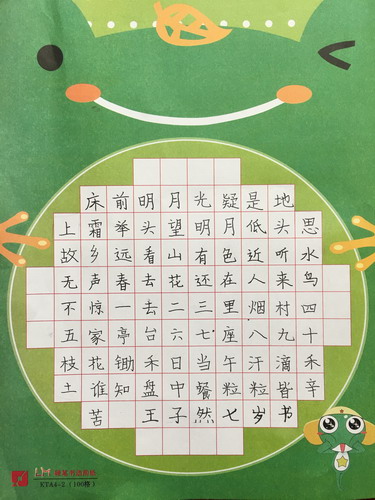 床前明月光疑是地
上霜举头望明月低头思
故乡远看山有色近听水
无声春去花还在人来鸟
不惊一去二三里烟村四
五家亭台六七座八九十
枝花锄禾日当午汗滴禾
土谁知盘中餐粒粒皆辛
苦 王子然七岁书
KTA4-2(100格)